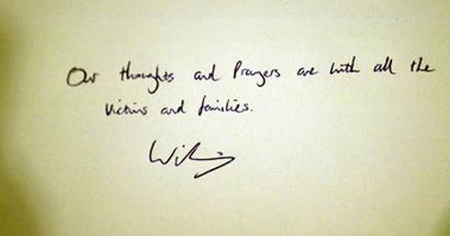 Our thoughts and Prayers are with all the
victims and families.